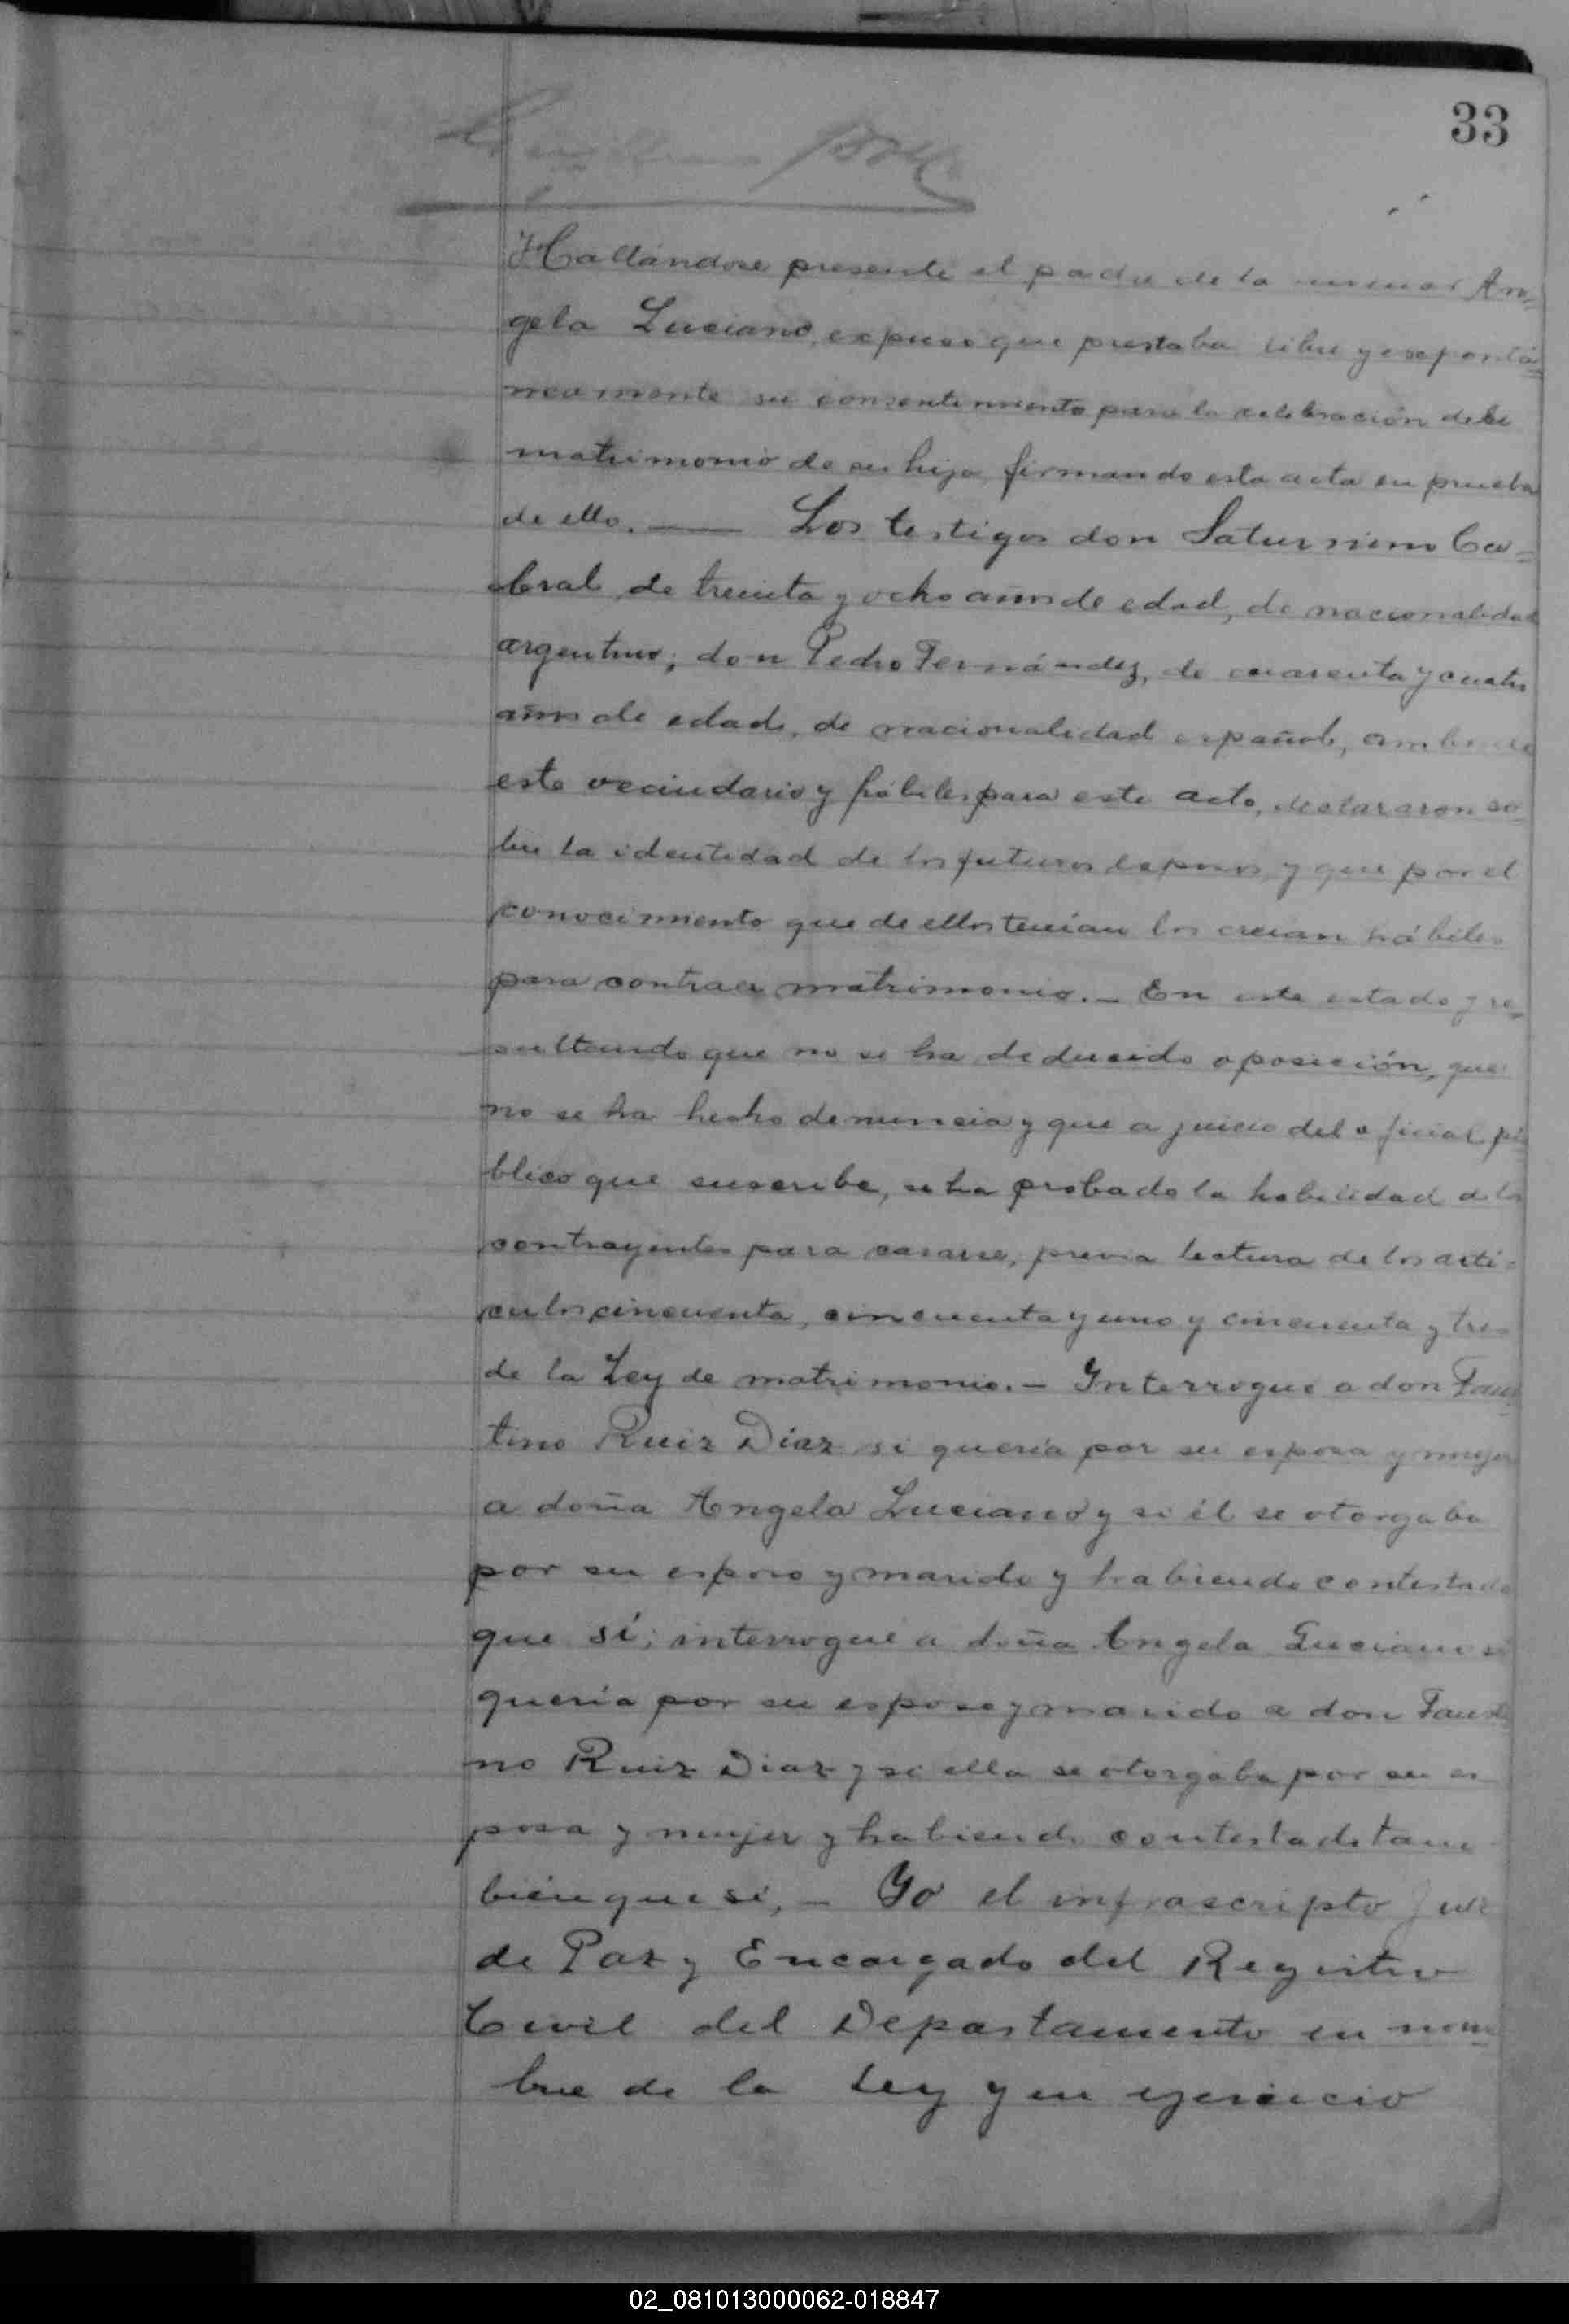 33
Hallándose presente el padre de la menor An=
gela Luciano, expuso que prestaba libre y espontá=
neamente su consentimiento para la celebración del
matrimonio de su hija, firmando esta acta en prueba
de ello. — Los testigos don Saturnino Ca=
bral, de treinta y ocho años de edad, de nacionalidad
argentino; don Pedro Fernández, de cuarenta y cuatro
años de edad, de nacionalidad español, ambos de
este vecindario y hábiles para este acto, declararon so=
bre la identidad de los futuros esposos y que por el
conocimiento que de ellos tenían los creian hábiles
para contraer matrimonio. – En este estado y re=
sultando que no se ha deducido oposición, que
no se ha hecho denuncia y que a juicio del oficial pú
blico que suscribe, se ha probado la habilidad de los
contrayentes para casarse, previa lectura de los artí=
culos cincuenta, cincuenta y uno y cincuenta y tres
de la Ley de matrimonio. – Interrogué a don Faus
tino Ruiz Díaz si quería por su esposa y mujer
a doña Angela Luciano y si él se otorgaba
por su esposo y marido y habiendo contestado
que sí; interrogué a doña Angela Luciano si
quería por su esposo y marido a don Fausti
no Ruiz Diaz y si ella se otorgaba por su es
posa y mujer y habiendo contestado tam
bién que sí, – Yo el infrascripto Juez
de Paz y Encargado del Registro
Civil del Departamento en nom
bre de la Ley y en ejercicio
02_081013000062-018847